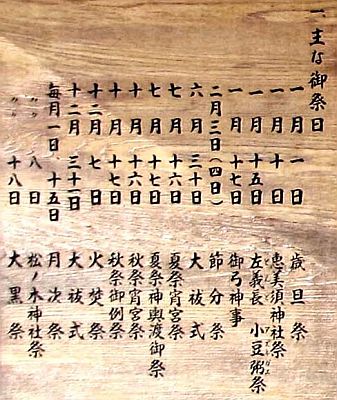 一、主な御祭日
一月一日 歳旦祭
一月十日 恵美須神社祭
一月十五日 左義長 小豆粥祭
一月十七日 御弓神事
二月三日(四日) 節分祭
六月三十日 大祓式
七月十六日 夏祭宵宮祭
七月十七日 夏祭神輿渡御祭
十月十六日 秋祭宵宮祭
十月十七日 秋祭御例祭
十二月七日 火焚祭
十二月三十一日 大祓式
毎月一日、十五日 月次祭
〃〃 八日 松ノ木神社祭
〃〃 十八日 大黒祭